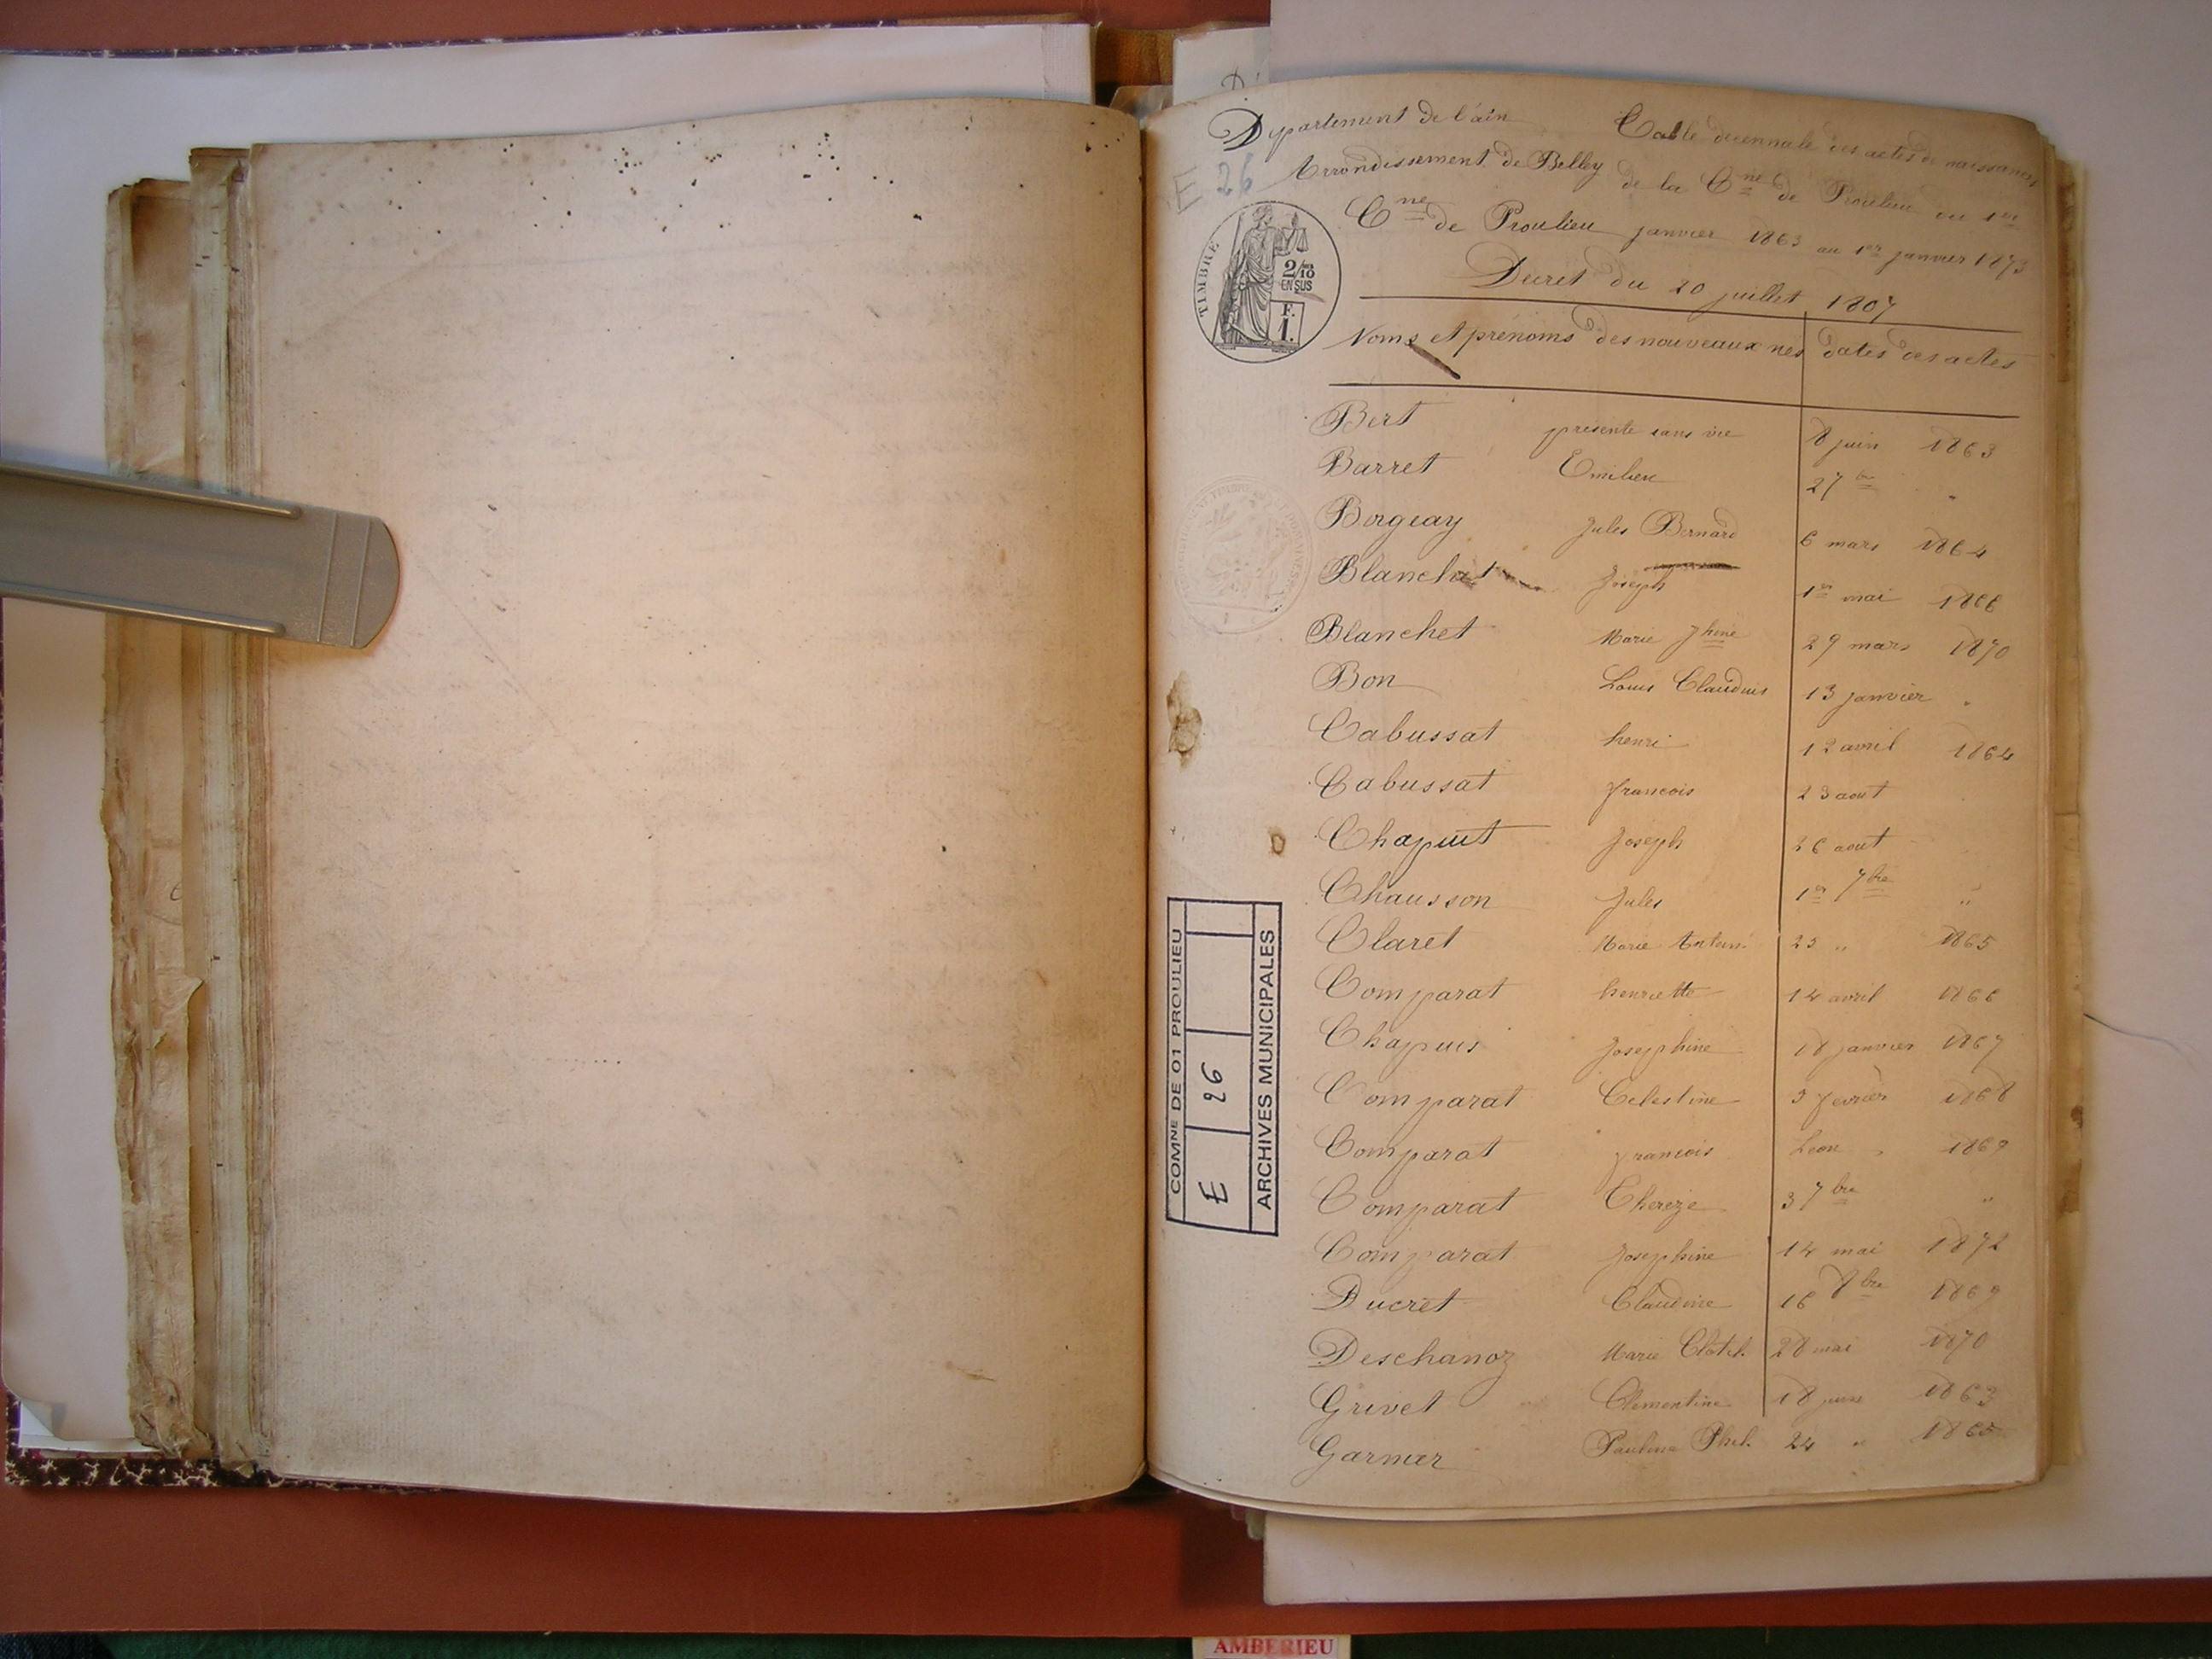 Département de l'ain
Arrondissement de Belley
Cne de Proulieu
Table decennale des actes de naissances
de la Cne de Proulieu du 1er
janvier 1863 au 1er janvier 1873
Decret du 20 juillet 1807
E 26
TIMBRE
2/10
EN SUS
F.
1.
Noms et prénoms des nouveaux nes dates des actes
Bert présenté sans vie 8 juin 1863
Barret Emilien 27 "
Borgeay Jules Bernard 6 mars 1864
Blanchet Joseph 1er mai 1866
Blanchet Marie Jhine 29 mars 1870
Bon Louis Claudius 13 janvier "
Cabussat henri 12 avril 1864
Cabussat francois 23 aout
Chapuit Joseph 26 aout
Chausson Jules 1er 7bre "
Claret Marie Antoin. 23 " 1865
Comparat henriette 14 avril 1866
Chapuis Josephine 18 janvier 1867
Comparat Celestine 3 fevrier 1868
Comparat francois Leon " 1869
Comparat Thereze 3 7bre "
Comparat Josephine 14 mai 1872
Ducret Claudine 16 8bre 1869
Deschanoz Marie Clotil. 28 mai 1870
Grivet Clementine 18 juin 1863
Garnier Pauline Phil. 24 " 1865
COMNE DE 01 PROULIEU
E 26
ARCHIVES MUNICIPALES
AMBERIEU